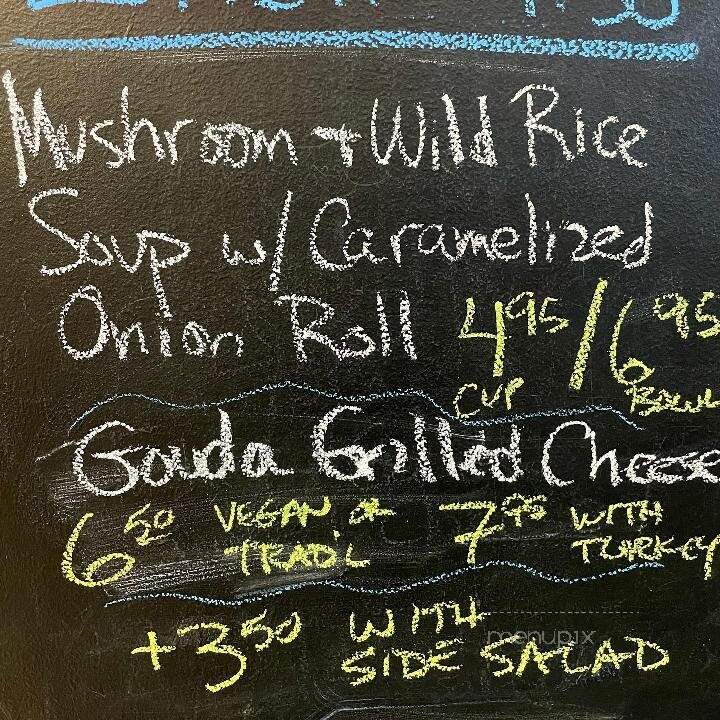 Mushroom + Wild Rice
Soup w/ Caramelized
Onion Roll 4.95 / 6.95
CUP BOWL
Gouda Grilled Cheese
6.50 VEGAN or TRAD'L 7.95 WITH TURKEY
+3.50 WITH SIDE SALAD
menupix